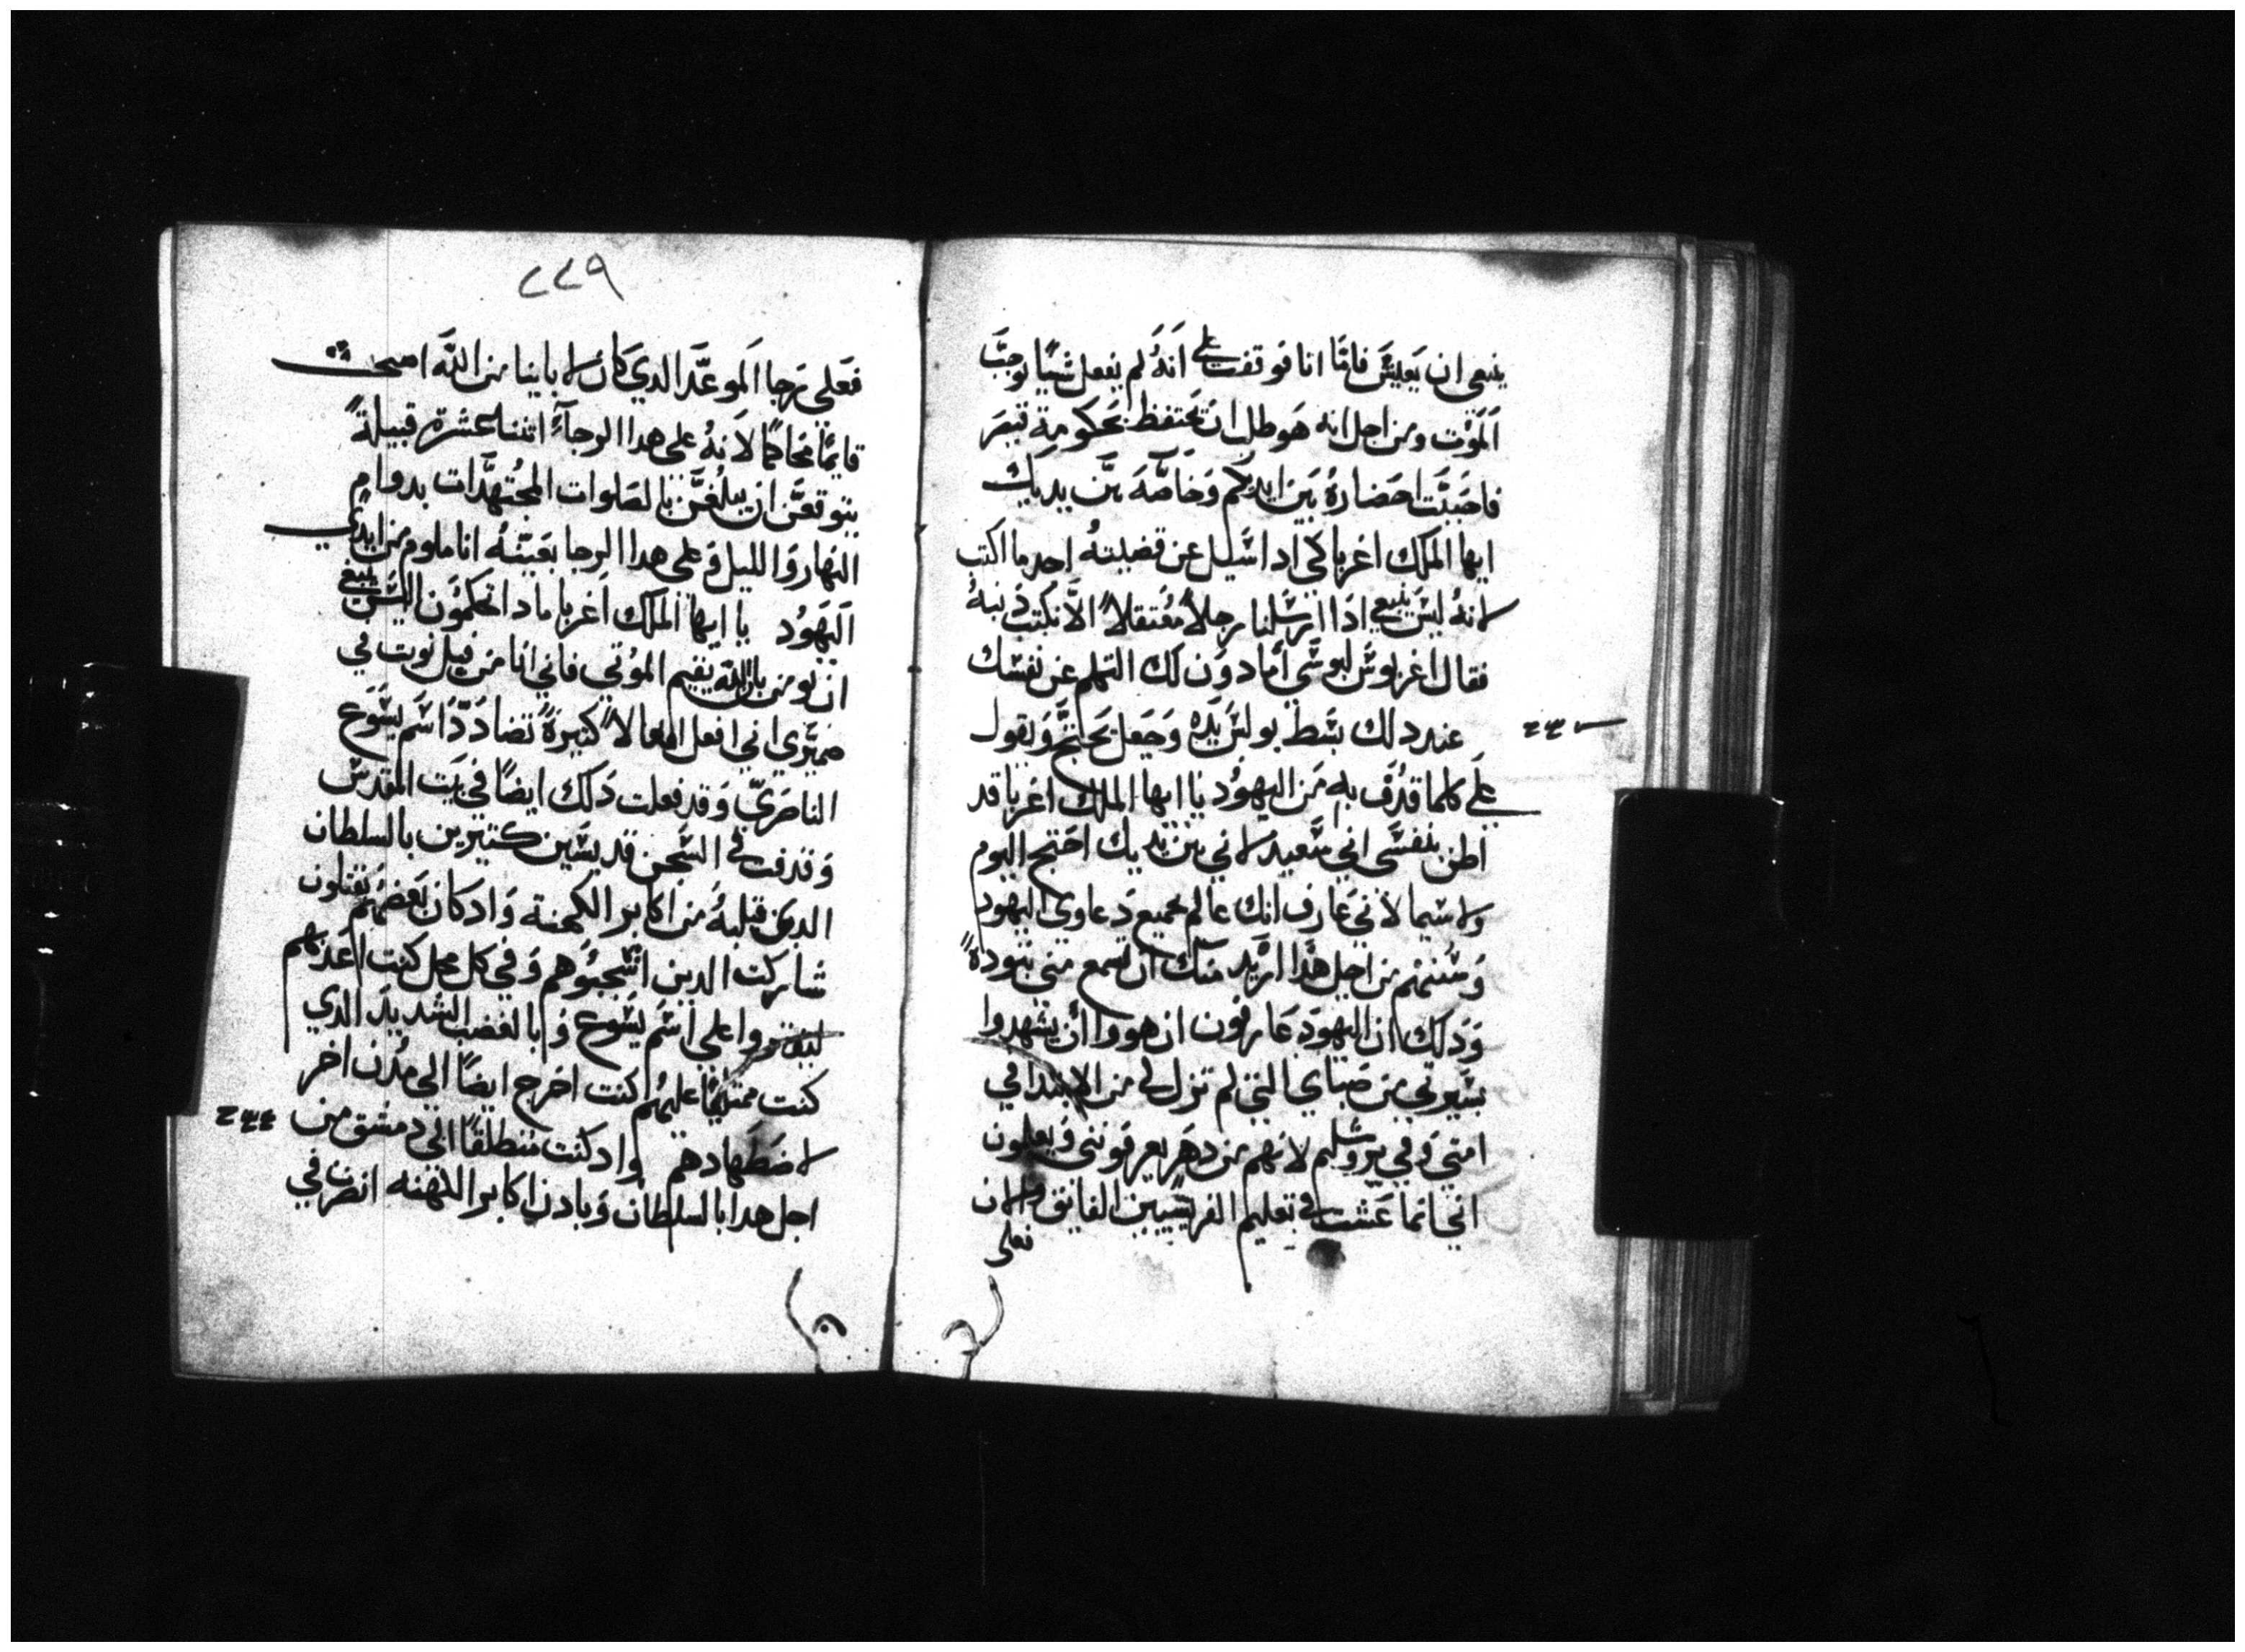 ينبغي ان يَعيش فامّا انا فوقفت على انهُ لم يفعل شيًا يوجبَ
المَوْت ومن اجل انه هو طلب ان يحتفظ بحكومة قيصَر
فاحبَبَت احضارهُ بَين ايديكم وَخاصّه بَين يديك
ايها الملك اغربا كي ادا اسَيل عن قضيته اجد ما اكتب
لانهُ ليسَ ينبغي ادَا ارسَلنا رجلاً مُعتقلاً الَّا نكتب دنبهُ
فقال اغربوسَ لبولسَ امادوَن لك التكلم عن نفسَك
عند دلك بسَط بولسَ يَدَه وَجَعَل يحتجّ وَيقول
علَى كلما قدُف به مَن اليهوُد يا ايها الملك اغربا قد
اظن بنفسَي اني سَعيد لاني بين يديك احَتج اليوم
ولا سَيما لانيَ عَارف انك عالم بجميع دَعاوي اليهود
وَسُننهم من اجل هَدا ارُيد منك ان تسمع مني بتوده
وَدلك ان اليهودَ عَارفون ان هووا ان يشهدوا
بسَيرتي من صَباي التي لم تزل لي من الابتدا في
امتي وَفي يروشليم لانهم من دهَر يعرفونني وَيعلمون
اني انما عَشت في تعليم الفريسَيين الفايق والان
فعلى
٢٢٩
فعَلي رجا المَوعَد الدي كان لابائنا من اللّه اصبحت
قايمًا محاكمًا لانهُ على هدا الرجاَء اثنتا عشرة قبيلةً
يتوقعنَ ان يبلغنَ بالصَلوات المجُتهدَات بدوام
النهَار وَالليل وَعلى هدا الرجا بعَينهُ انا ملوم من ايدي
اليَهوُد يا ايها الملك اغربا مادا تحكموَن اليسَ ينبغي
ان يومن بان اللّه يقيم الموُتي فاني انا من قبل نويت في
ضميَري اني افعل افعالاً كثيرةً تضادَدًا اسَم يسَوع
الناصَريّ وَقد فعلت دَلك ايضًا في بَيت المقدسَ
وَقدفت في السَجن قديسَين كتيرين بالسلطان
الدي قبلتهُ من اكابر الكهنة وَاد كان بَعضهُم يقتلون
شاركت الدين اسَتجبوُهم وَفي كل محل كنت اعَدبهم
ليفتروا علي اسَم يسَوع وَبالغضب الشديدَ الدي
كنت ممتليًا عليهُم كنت اخرج ايضًا الي مُدن اخر
لاضَطهادهم وَاد كنت منطلقًا الي دمشق من
اجل هدا بالسلطان وَبادن اكابر الكهنه انصَرت في